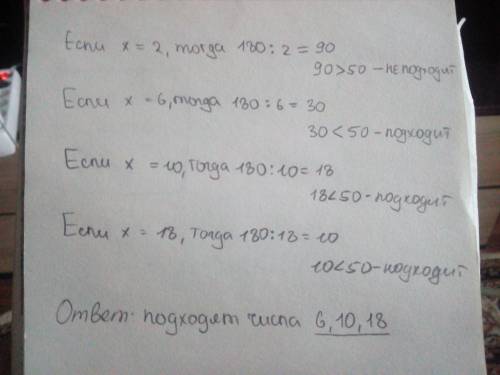 Если x = 2, тогда 180 : 2 = 90
90 > 50 – не подходит
Если x = 6, тогда 180 : 6 = 30
30 < 50 – подходит
Если x = 10, тогда 180 : 10 = 18
18 < 50 – подходит
Если x = 18, тогда 180 : 18 = 10
10 < 50 – подходит
Ответ: подходят числа 6, 10, 18